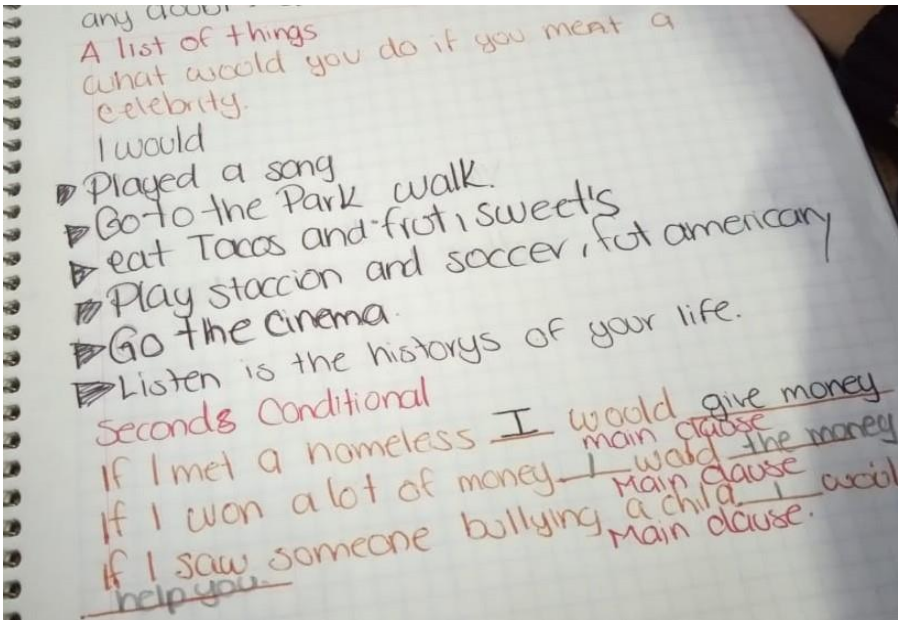 any
A list of things
what would you do if you meat a
celebrity.
I would
Played a song
Go to the Park walk.
eat Tacos and frut, sweet's
Play staccion and soccer, fut american
Go the cinema.
Listen is the historys of your life.
Seconds Conditional
If I met a homeless I would give money
main clause
If I won a lot of money I would the money
Main clause
If I saw someone bullying a child I
Main clause.
help you.